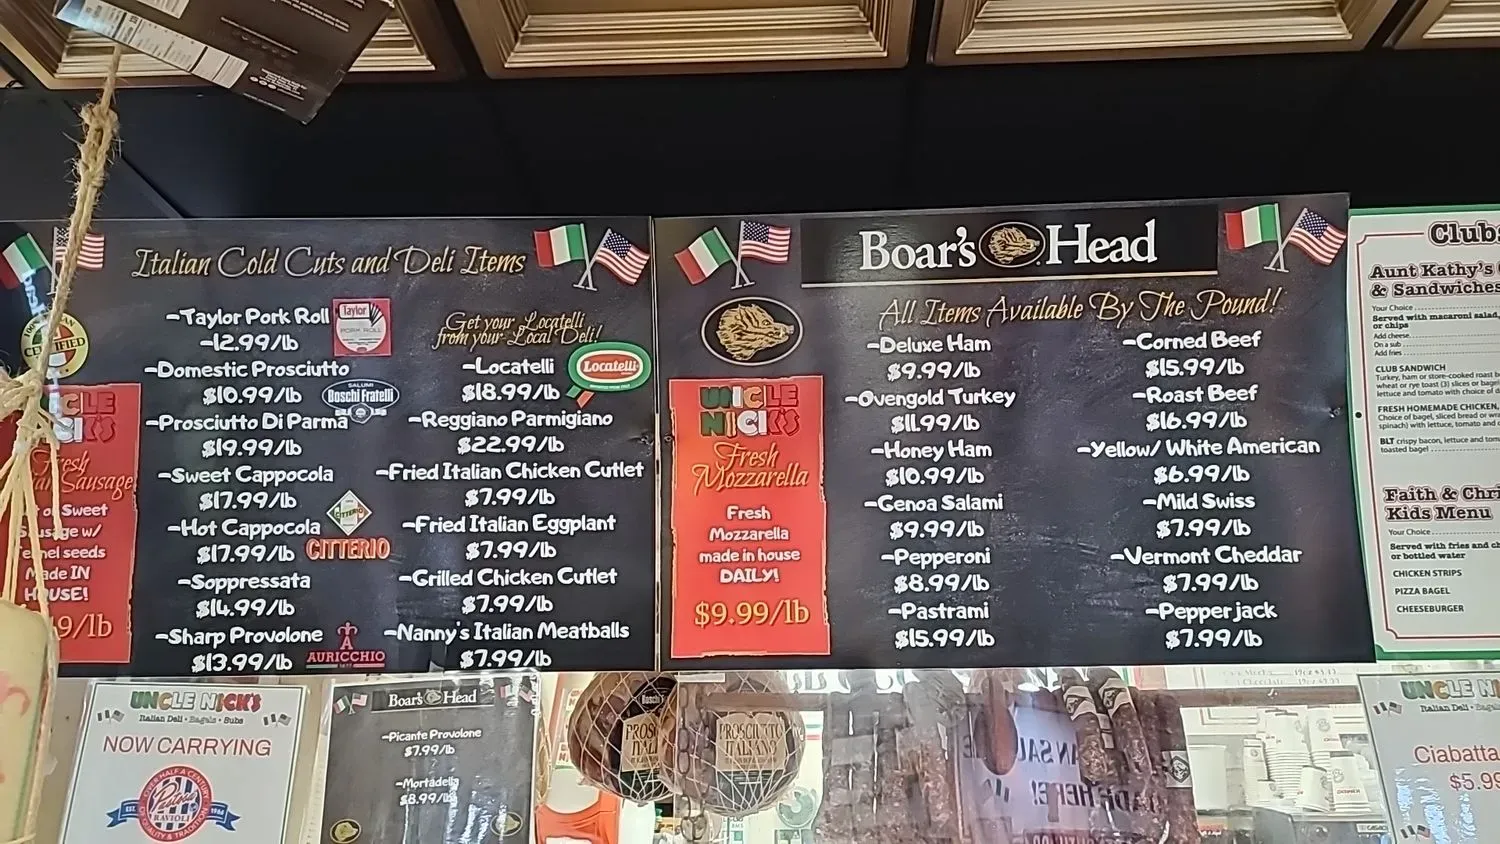 Italian Cold Cuts and Deli Items
-Taylor Pork Roll
-12.99/lb
Taylor
PORK ROLL
-Domestic Prosciutto
$10.99/lb
SALUMI
Boschi Fratelli
-Prosciutto Di Parma
$19.99/lb
-Sweet Cappocola
$17.99/lb
-Hot Cappocola
$17.99/lb
CITTERIO
CITTERIO
-Soppressata
$14.99/lb
-Sharp Provolone
$13.99/lb
AURICCHIO
Get your Locatelli
from your Local Deli!
-Locatelli
$18.99/lb
Locatelli
-Reggiano Parmigiano
$22.99/lb
-Fried Italian Chicken Cutlet
$7.99/lb
-Fried Italian Eggplant
$7.99/lb
-Grilled Chicken Cutlet
$7.99/lb
-Nanny's Italian Meatballs
$7.99/lb
Fresh
Sausage
Sweet
w/
seeds
Made IN
HOUSE!
9/lb
Boar's Head
All Items Available By The Pound!
UNCLE
NICK'S
Fresh
Mozzarella
Fresh
Mozzarella
made in house
DAILY!
$9.99/lb
-Deluxe Ham
$9.99/lb
-Ovengold Turkey
$11.99/lb
-Honey Ham
$10.99/lb
-Genoa Salami
$9.99/lb
-Pepperoni
$8.99/lb
-Pastrami
$15.99/lb
-Corned Beef
$15.99/lb
-Roast Beef
$16.99/lb
-Yellow/ White American
$6.99/lb
-Mild Swiss
$7.99/lb
-Vermont Cheddar
$7.99/lb
-Pepper jack
$7.99/lb
Clubs
Aunt Kathy's
& Sandwiches
Your Choice
Served with macaroni salad,
or chips
Add cheese
On a sub
Add fries
CLUB SANDWICH
Turkey, ham or store-cooked roast
wheat or rye toast (3) slices or
lettuce and tomato with choice of
FRESH HOMEMADE CHICKEN,
Choice of bagel, sliced bread or
spinach) with lettuce, tomato and
BLT crispy bacon, lettuce and
toasted bagel
Faith &
Kids Menu
Your Choice
Served with fries and
or bottled water
CHICKEN STRIPS
PIZZA BAGEL
CHEESEBURGER
UNCLE NICK'S
Italian Deli • Bagels • Subs
NOW CARRYING
OVER HALF A CENTURY
RAVIOLI
QUALITY & TRADITION
Boar's Head
-Picante Provolone
$7.99/lb
-Mortadella
$8.99/lb
PROSCIUTTO
ITALIANO
Italian Deli
Ciabatta
$5.99